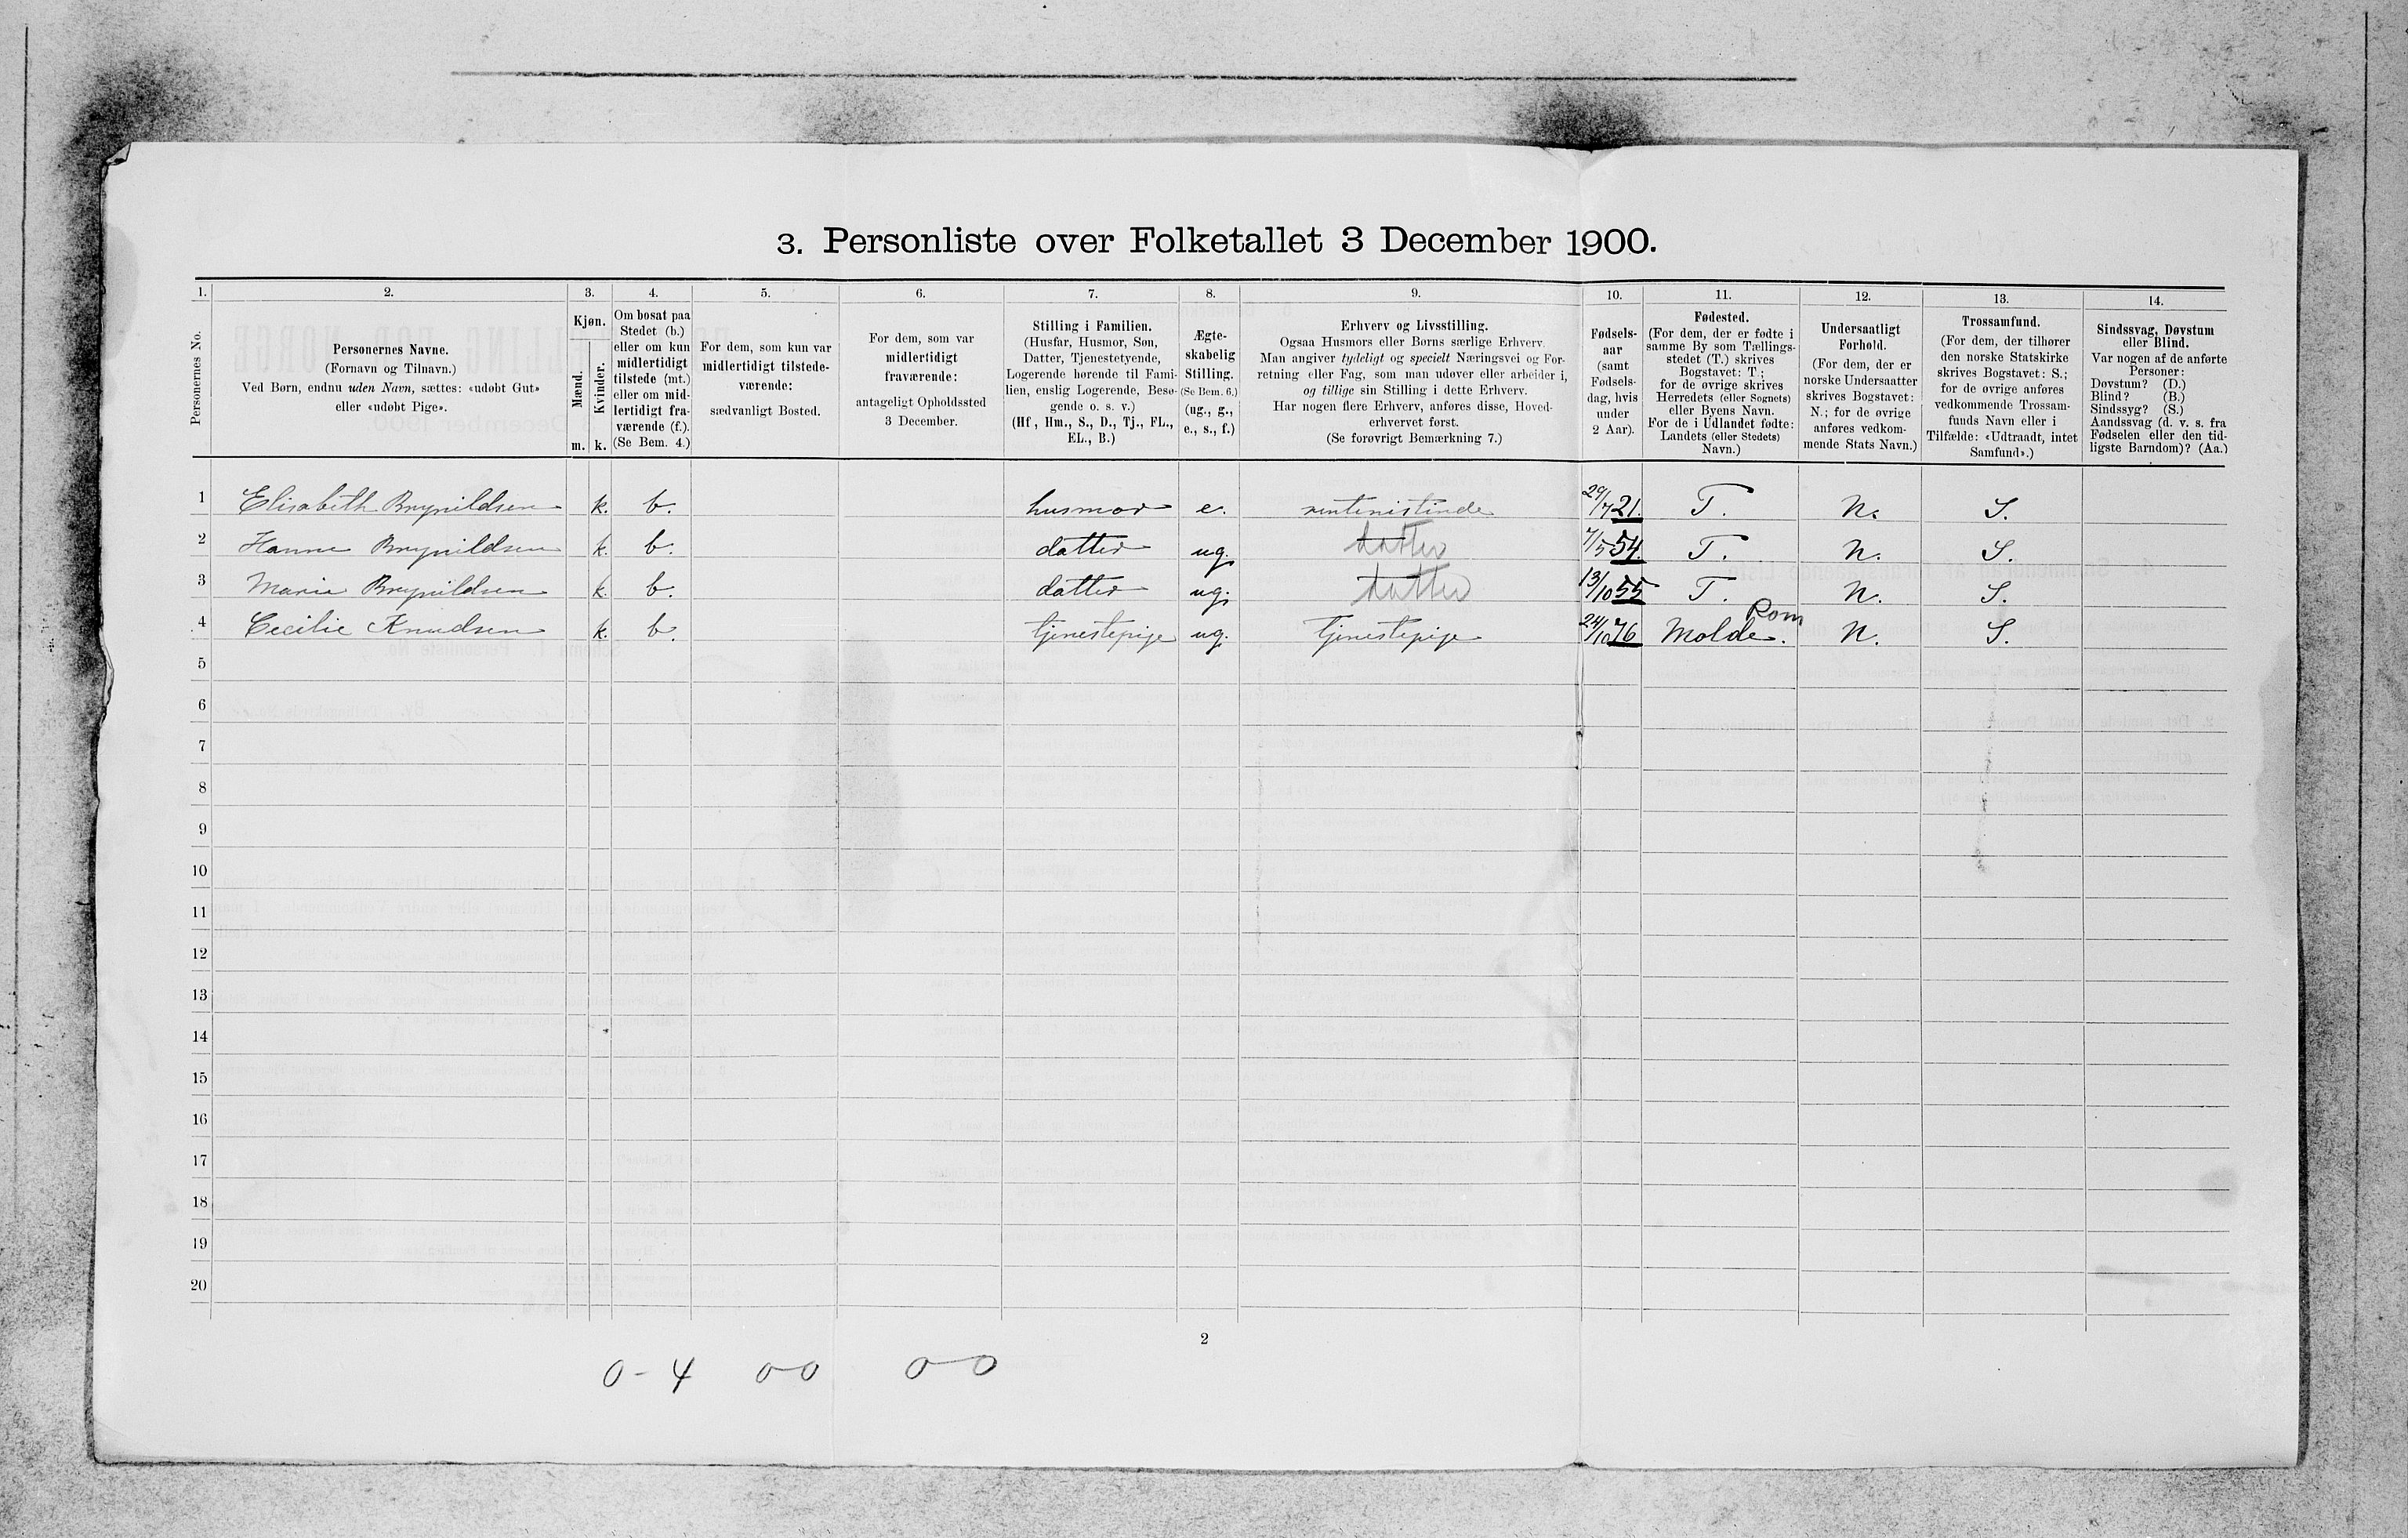 3. Personliste over Folketallet 3 December 1900.
1. 2. 3. 4. 5. 6. 7. 8. 9. 10. 11. 12. 13. 14.
Personernes No.
Personernes Navne.
(Fornavn og Tilnavn.)
Ved Børn, endnu uden Navn, sættes: «udøbt Gut»
eller «udøbt Pige».
Kjøn.
Mænd.
Kvinder.
m. k.
Om bosat paa
Stedet (b.)
eller om kun
midlertidigt
tilstede (mt.)
eller om mid-
lertidigt fra-
værende (f.).
(Se Bem. 4.)
For dem, som kun var
midlertidigt tilstede-
værende:
sædvanligt Bosted.
For dem, som var
midlertidigt
fraværende:
antageligt Opholdssted
3 December.
Stilling i Familien.
(Husfar, Husmor, Søn,
Datter, Tjenestetyende,
Logerende hørende til Fami-
lien, enslig Logerende, Besø-
gende o. s. v.)
(Hf, Hm., S., D., Tj., FL.,
EL., B.)
Ægte-
skabelig
Stilling.
(Se Bem. 6.)
(ug., g.,
e., s., f.)
Erhverv og Livsstilling.
Ogsaa Husmors eller Børns særlige Erhverv.
Man angiver tydeligt og specielt Næringsvei og For-
retning eller Fag, som man udøver eller arbeider i,
og tillige sin Stilling i dette Erhverv.
Har nogen flere Erhverv, anføres disse, Hoved-
erhvervet først.
(Se forøvrigt Bemærkning 7.)
Fødsels-
aar
(samt
Fødsels-
dag, hvis
under
2 Aar).
Fødested.
(For dem, der er fødte i
samme By som Tællings-
stedet (T.) skrives
Bogstavet: T;
for de øvrige skrives
Herredets (eller Sognets)
eller Byens Navn.
For de i Udlandet fødte:
Landets (eller Stedets)
Navn.)
Undersaatligt
Forhold.
(For dem, der er
norske Undersaatter
skrives Bogstavet:
N.; for de øvrige
anføres vedkom-
mende Stats Navn.)
Trossamfund.
(For dem, der tilhører
den norske Statskirke
skrives Bogstavet: S.;
for de øvrige anføres
vedkommende Trossam-
funds Navn eller i
Tilfælde: «Udtraadt, intet
Samfund».)
Sindssvag, Døvstum
eller Blind.
Var nogen af de anførte
Personer:
Døvstum? (D.)
Blind? (B.)
Sindssyg? (S.)
Aandssvag (d. v. s. fra
Fødselen eller den tid-
ligste Barndom)? (Aa.)
1 Elisabeth Brynildsen k. b. husmor e. rentenistinde 29/7 21. T. N. S.
2 Hanne Brynildsen k. b. datter ug. datter 7/5 54 T. N. S.
3 Marie Brynildsen k. b. datter ug. datter 13/10 55 T. N. S.
Rom
4 Cecilie Knudsen k. b. tjenestepige ug. tjenestepige 24/10 76 Molde. N. S.
5
6
7
8
9
10
11
12
13
14
15
16
17
18
19
20
2
0-4 0-0 0-0